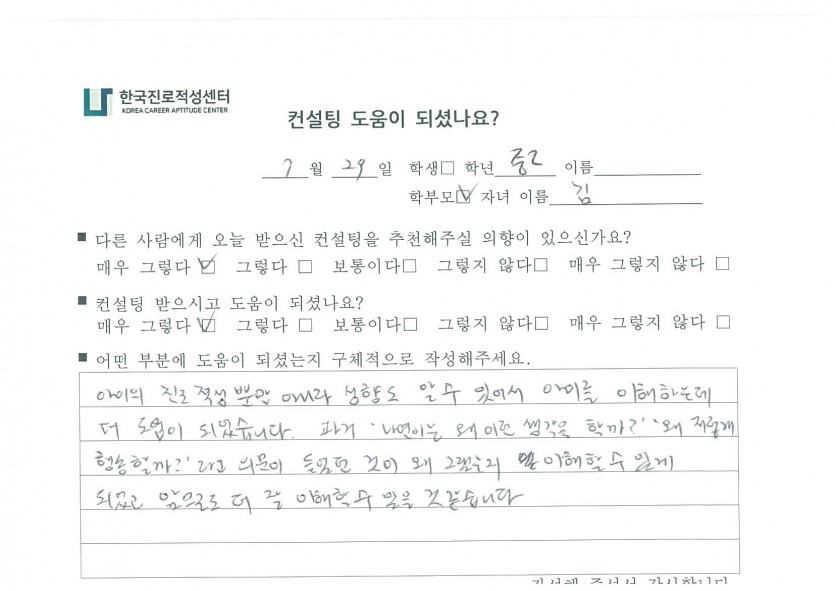 한국진로적성센터
KOREA CAREER APTITUDE CENTER
컨설팅 도움이 되셨나요?
7 월 29 일 학생□ 학년 중2 이름
학부모☑ 자녀 이름 김
■ 다른 사람에게 오늘 받으신 컨설팅을 추천해주실 의향이 있으신가요?
매우 그렇다 ☑ 그렇다 □ 보통이다□ 그렇지 않다□ 매우 그렇지 않다 □
■ 컨설팅 받으시고 도움이 되셨나요?
매우 그렇다 ☑ 그렇다 □ 보통이다□ 그렇지 않다□ 매우 그렇지 않다 □
■ 어떤 부분에 도움이 되셨는지 구체적으로 작성해주세요.
아이의 진로적성 뿐만 아니라 성향도 알 수 있어서 아이를 이해하는데
더 도움이 되었습니다. 과거 '나연이는 왜 이런 생각을 할까?' '왜 저렇게
행동할까?' 라는 의문이 들었던 것이 왜 그런지 이해할 수 있게
되었고 앞으로도 더 잘 이해할 수 있을 것 같습니다